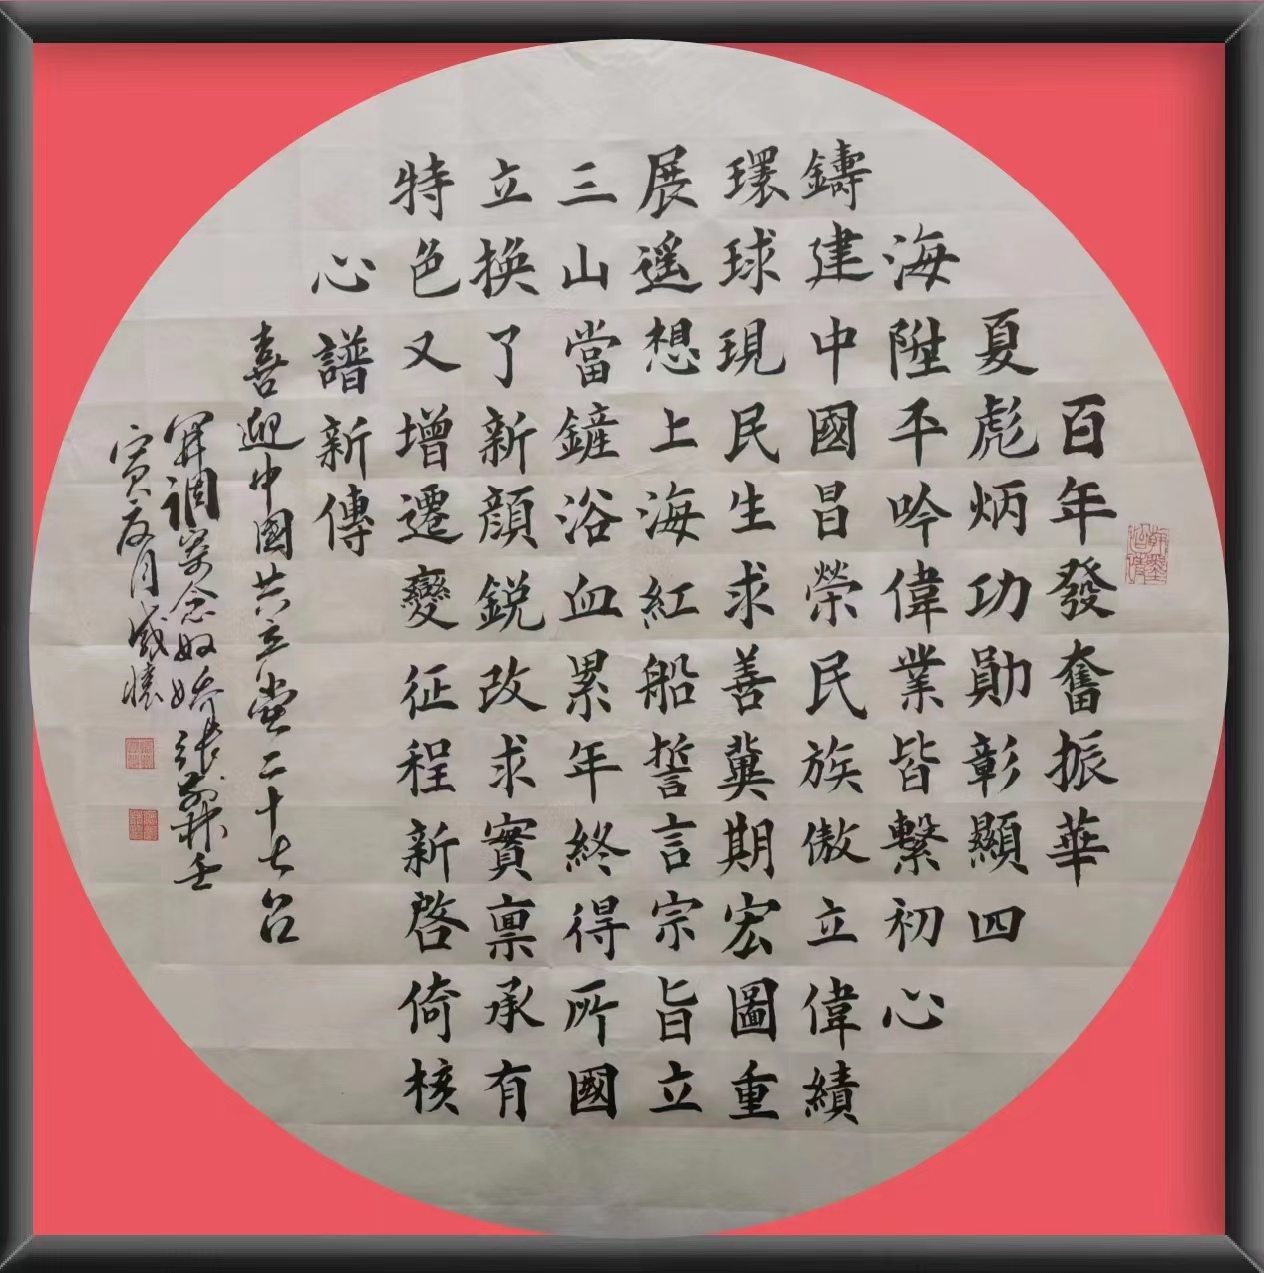 百年發奮振華
夏彪炳功勛彰顯四
海陞平吟偉業皆繫初心
鑄建中國昌榮民族傲立偉績
環球現民生求善冀期宏圖重
展遥想上海紅船誓言宗旨立
三山當鏟浴血累年終得所國
立换了新顔鋭改求實禀承有
特色又增遷變征程新啓倚核
心譜新傳
喜迎中國共产党二十大召
開調寄念奴嬌張
壬
寅
月感懷